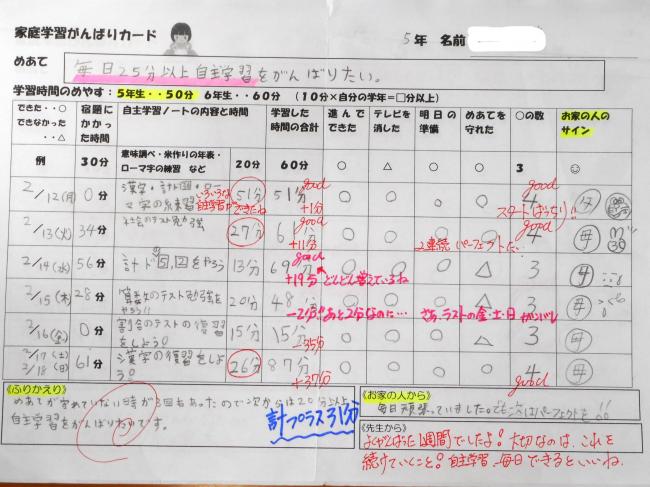 家庭学習がんばりカード
5年 名前
めあて 毎日25分以上自主学習をがんばりたい。
学習時間のめやす：5年生・・50分 6年生・・60分 （10分×自分の学年＝□分以上）
できた・・○ できなかった・・△ 宿題にかかった時間 自主学習ノートの内容と時間 学習した時間の合計 進んでできた テレビを消した 明日の準備 めあてを守れた ○の数 お家の人のサイン
例 30分 意味調べ・米作りの年表・ローマ字の練習 など 20分 60分 ○ △ ○ ○ 3 ☺
2/12(月) 0分 51分 51分 good +1分 ○ ○ ○ ○ 4 good スタートばっちり!!
自主学習が
2/13(火) 34分 社会のテスト勉強 27分 good +11分 ○ ○ ○ ○ 4 good 2連続パーフェクト 母
2/14(水) 56分 計ド をやろう 13分 69分 good +19分 どんどん増えているね ○ ○ ○ △ 3 母
2/15(木) 28分 算数のテスト勉強をやろう!! 20分 48分 -2分 あと2分なのに… ○ ○ ○ △ 3 さあ、ラストの金・土・日 母
2/16(金) 0分 割合のテストの復習をしよう! 15分 15分 -35分 ○ ○ ○ △ 3 母
2/17(土) 2/18(日) 61分 漢字の復習をしよう! 26分 87分 +37分 ○ ○ ○ ○ 4 good 母
《ふりかえり》
めあてが守れていない時が3回もあったので次からは20分以上
自主学習をがんばりたいです。
計プラス31分
《お家の人から》
毎日頑張っていました。でも次はパーフェクトを!!
《先生から》
よくがんばった1週間でしたよ!大切なのは、これを
続けていくこと!自主学習、毎日できるといいね。